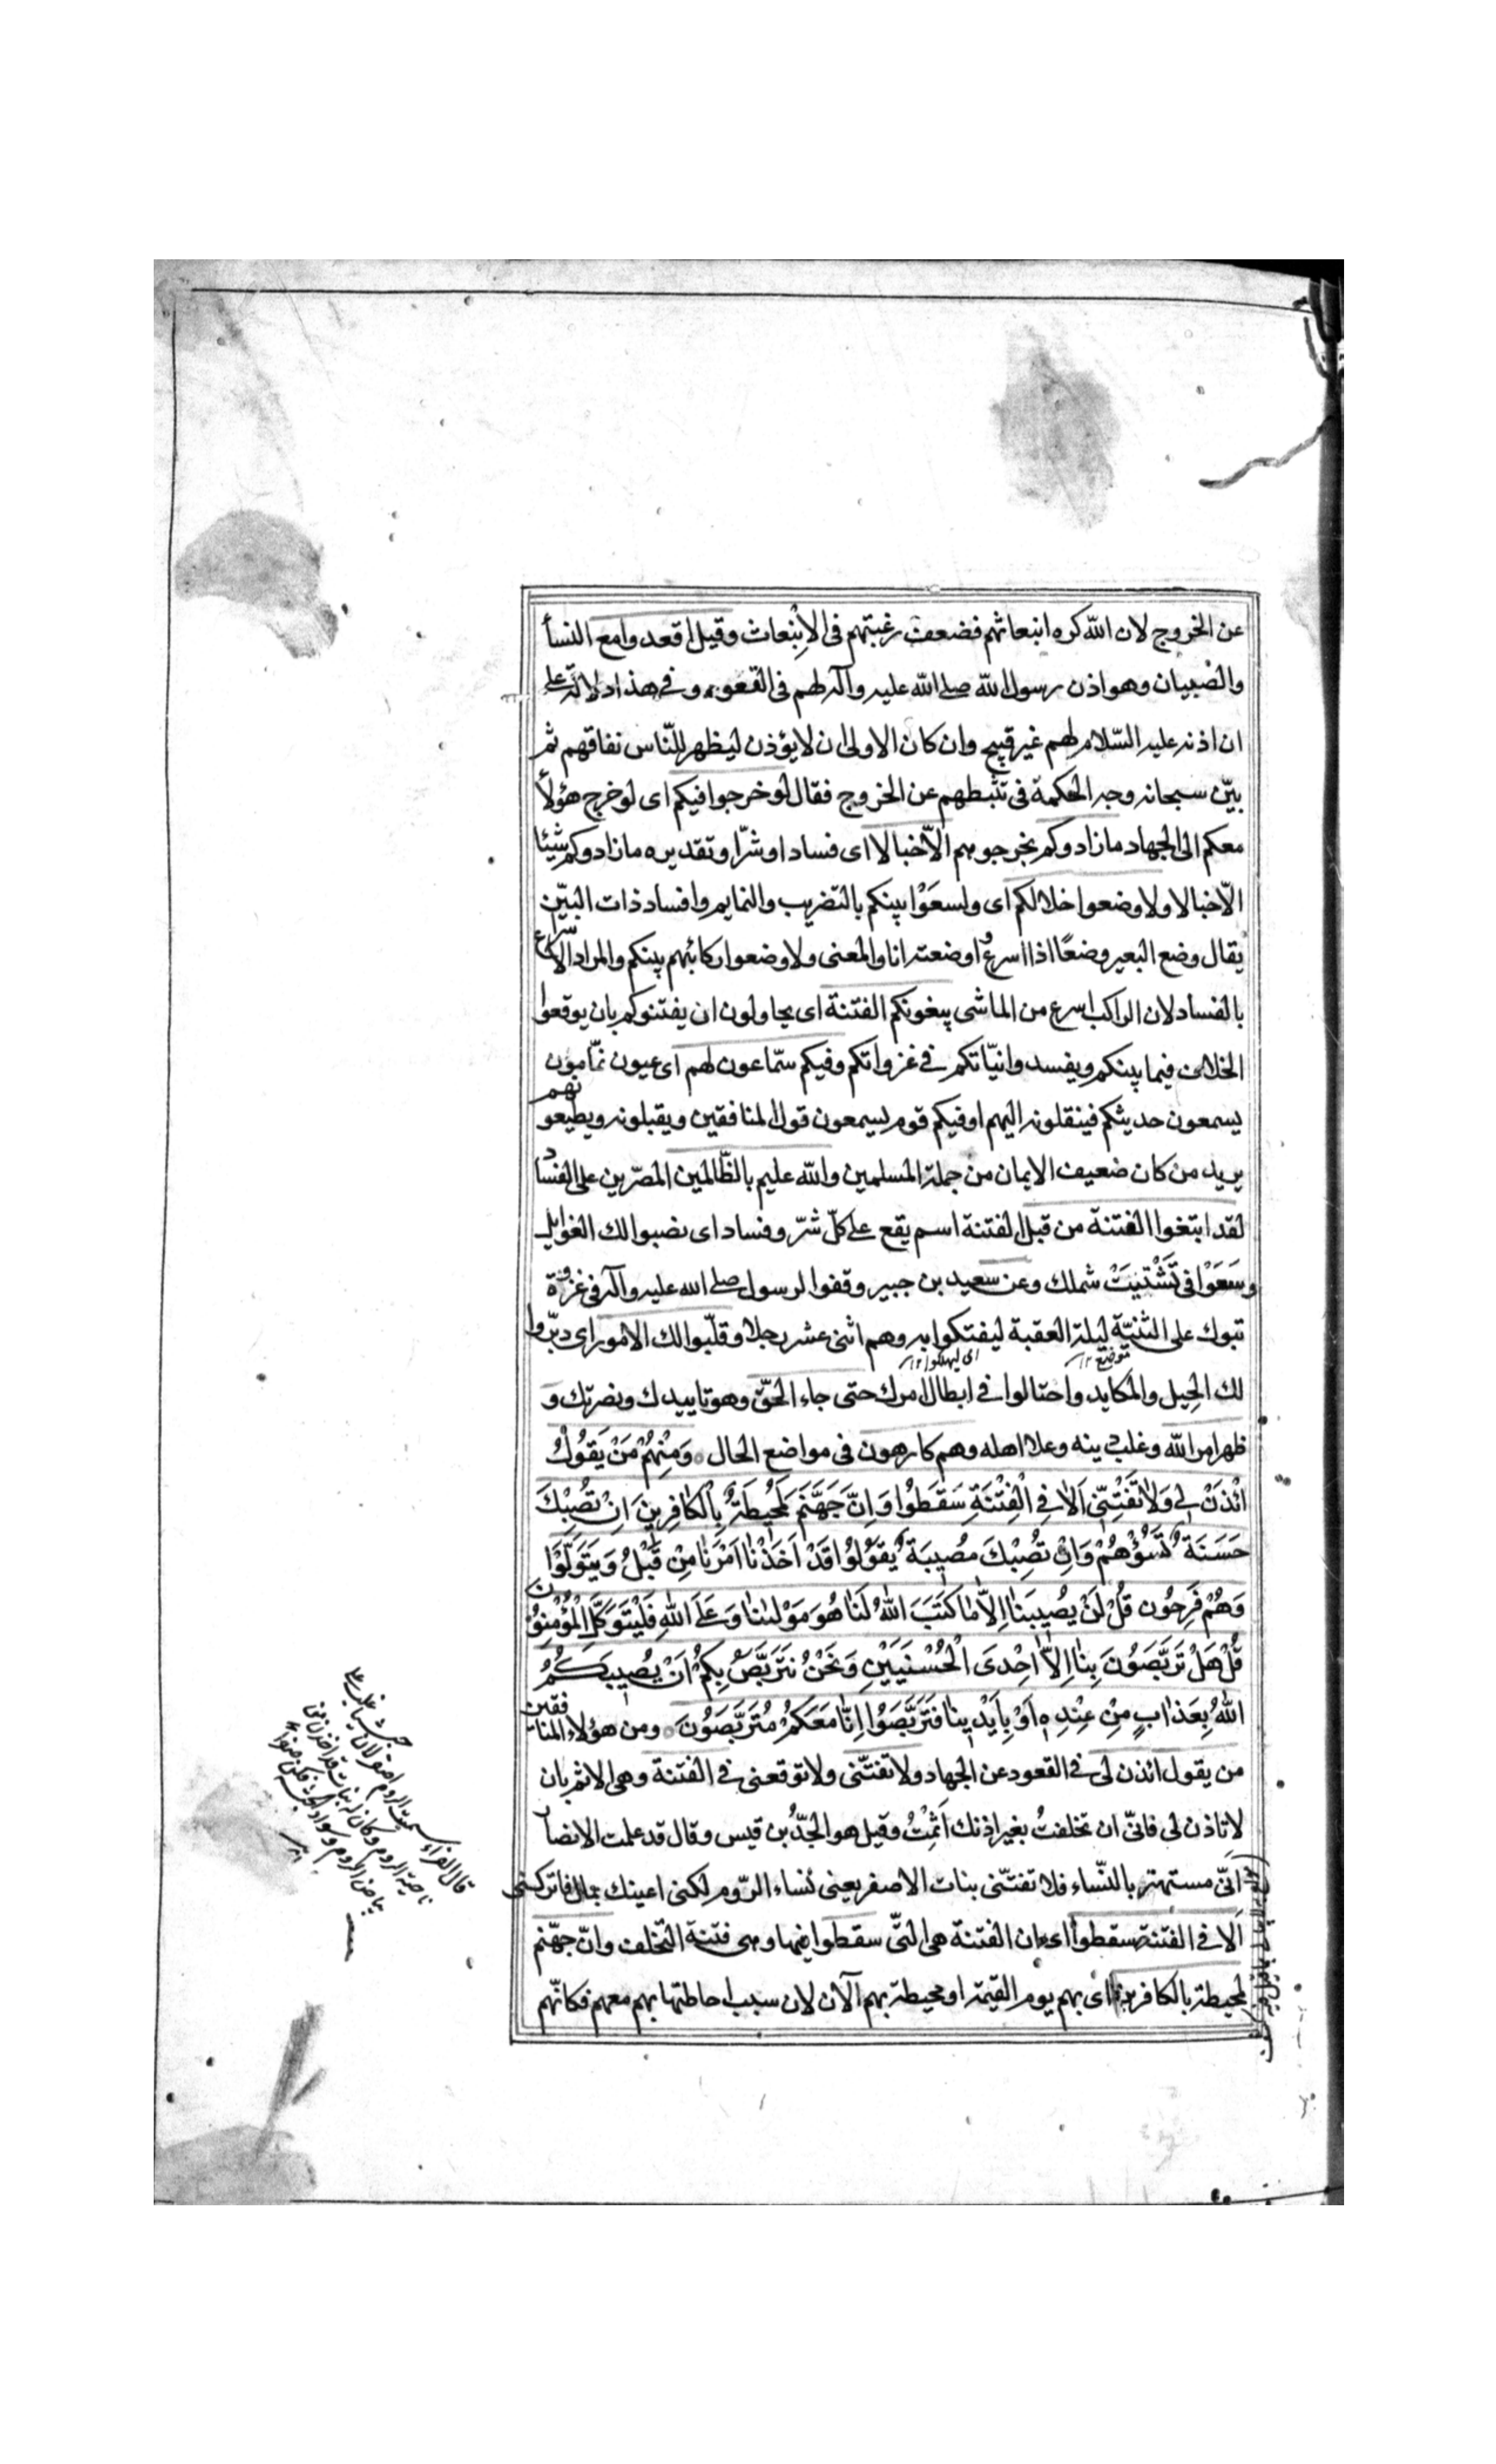 عن الخروج لان الله كره انبعاثهم فضعفت رغبتهم فى الاِنْبعاث وقيل اقعدوا مع النسأ
والصبيان وهو اذن رسول الله صلى الله عليه وآله لهم فى القعود وفى هذا دلالة على
ان اذنه عليه السّلام لهم غير قبيح وان كان الاولى ان لا يؤذن ليظهر للنّاس نفاقهم ثم
بيّن سبحانه وجه الحكمة فى تثبطهم عن الخروج فقال لو خرجوا فيكم اى لو خرج هؤلأ
معكم الى الجهاد ما زادوكم بخروجهم الاّ خبالا اى فسادا او شرّا وتقديره ما زادوكم شيئا
الاّ خبالا ولا وضعوا خلالكم اى ولسعَوْا بينكم بالتضريب والنمايم وافساد ذات البيّن
يقال وضع البعير وضعًا اذا اسرع و اوضعته انا والمعنى ولا وضعوا ركائبهم بينكم والمراد الاسراع
بالفساد لان الراكب اسرع من الماشى يبغونكم الفتنة اى يحاولون ان يفتنوكم بان يوقعوا
الخلاف فيما بينكم ويفسدوا نيّاتكم فى غزواتكم وفيكم سمّاعون لهم اى عيون نمّامون
يسمعون حديثكم فينقلونه اليهم او فيكم قوم يسمعون قول المنافقين ويقبلونه ويطيعونهم
يريد من كان ضعيف الايمان من جملة المسلمين والله عليم بالظّالمين المصرّين على الفساد
لقد ابتغوا الفتنة من قبل الفتنة اسم يقع على كلّ شرّ وفساد اى نصبوا لك الغوايل
وسَعَوْا فى تَشْتيتْ شملك وعن سعيد بن جبير وقفوا لرسول صلى الله عليه وآله فى غزوة
تبوك على الثنيّة ليلة العقبة ليفتكوا به وهم اثنى عشر رجلا وقلّبوا لك الامور اى دبّروا
موضع ١٢ اى ليهلكوا ١٢
لك الحِيل والمكايد واحتالوا فى ابطال امرك حتى جاء الحَقّ وهو تاييدك ونصرتك و
ظهر امر الله وغلب دينه وعلا اهله وهم كارهون فى مواضع الحال ۝ وَمِنْهُمْ مَنْ يَقُولُ
ائْذَنْ لِى وَلاٰ تَفْتِنّى اَلاٰ فِى الْفِتْنَةِ سَقَطُوا وَاِنَّ جَهَنَّمَ لَمُحِيطَةٌ بِالْكٰافِرِينَ اِنْ تُصِبْكَ
حَسَنَةٌ تَسُؤْهُمْ وَاِنْ تُصِبْكَ مُصِيبَةٌ يَقُولُوا قَدْ اَخَذْنٰا اَمْرَنٰا مِنْ قَبْلُ وَيَتَوَلَّوْا
وَهُمْ فَرِحُون قُلْ لَنْ يُصِيبَنٰا اِلاّٰ مٰا كَتَبَ اللهُ لَنٰا هُوَ مَوْلٰينٰا وَعَلَى اللهِ فَلْيَتَوَكَّلِ الْمُؤْمِنُونَ
قُلْ هَلْ تَرَبَّصُونَ بِنٰا اِلاّٰ اِحْدَى الْحُسْنَيَيْنِ وَنَحْنُ نَتَرَبَّصُ بِكُمْ اَنْ يُصِيبَكُمُ
اللهُ بِعَذٰابٍ مِنْ عِنْدِهِ اَوْ بِاَيْدِينٰا فَتَرَبَّصُوا اِنّٰا مَعَكُمْ مُتَرَبِّصُونَ ۝ ومن هؤلاء المنافقين
من يقول ائذن لى فى القعود عن الجهاد ولا تفتنّى ولا توقعنى فى الفتنة وهى الاثم بان
لا تاذن لى فانّى ان تخلفتُ بغير اذنك اَثِمْتُ وقيل هو الجَدُّ بن قيس وقال قد علمت الانصار
انّى مستهتر بالنّساء فلا تفتنّى بنات الاصفر يعنى نساء الرّوم لكنى اعينك بمال فاتركنى
اَلا فى الفتنة سقطوا اى ان الفتنة هى الّتى سقطوا فيها وهى فتنة التّخلف وانّ جهّنم
لمحيطة بالكافرين اى بهم يوم القيمة او محيطة بهم الآن لان سبب احاطتها بهم معهم فكانّهم
قال الفراء سميت الروم اصفر لان
ناحية الروم وكان له بنات
بياض الروم وسواد